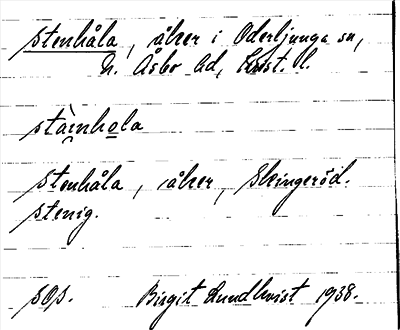 Stenhåla, åker i Oderljunga sn,
N. Åsbo hd, Krist. l.
stài̯nhola
Stenhåla, åker, Skingeröd.
Stenig.
sOs. Birgit Lundkvist 1938.